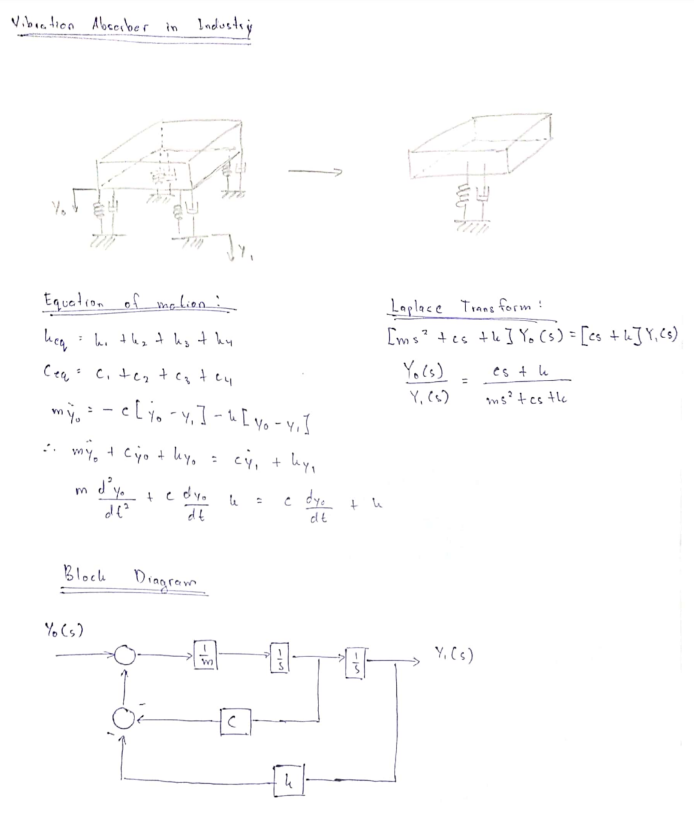 Vibration Absorber in Industry
Y₀
Y₁
Equation of motion:
keq = k₁ + k₂ + k₃ + k₄
Ceq = c₁ + c₂ + c₃ + c₄
mÿ₀ = - c[ẏ₀ - y₁] - k[y₀ - y₁]
∴ mÿ₀ + cẏ₀ + ky₀ = cẏ₁ + ky₁
m d²y₀/dt² + c dy₀/dt k = c dy₀/dt + k
Laplace Transform:
[ms² + cs + k] Y₀(s) = [cs + k] Y₁(s)
Y₀(s)/Y₁(s) = cs + k / ms² + cs + k
Block Diagram
Y₀(s)
1/m
1/s
1/s
Y₁(s)
-
C
-
k